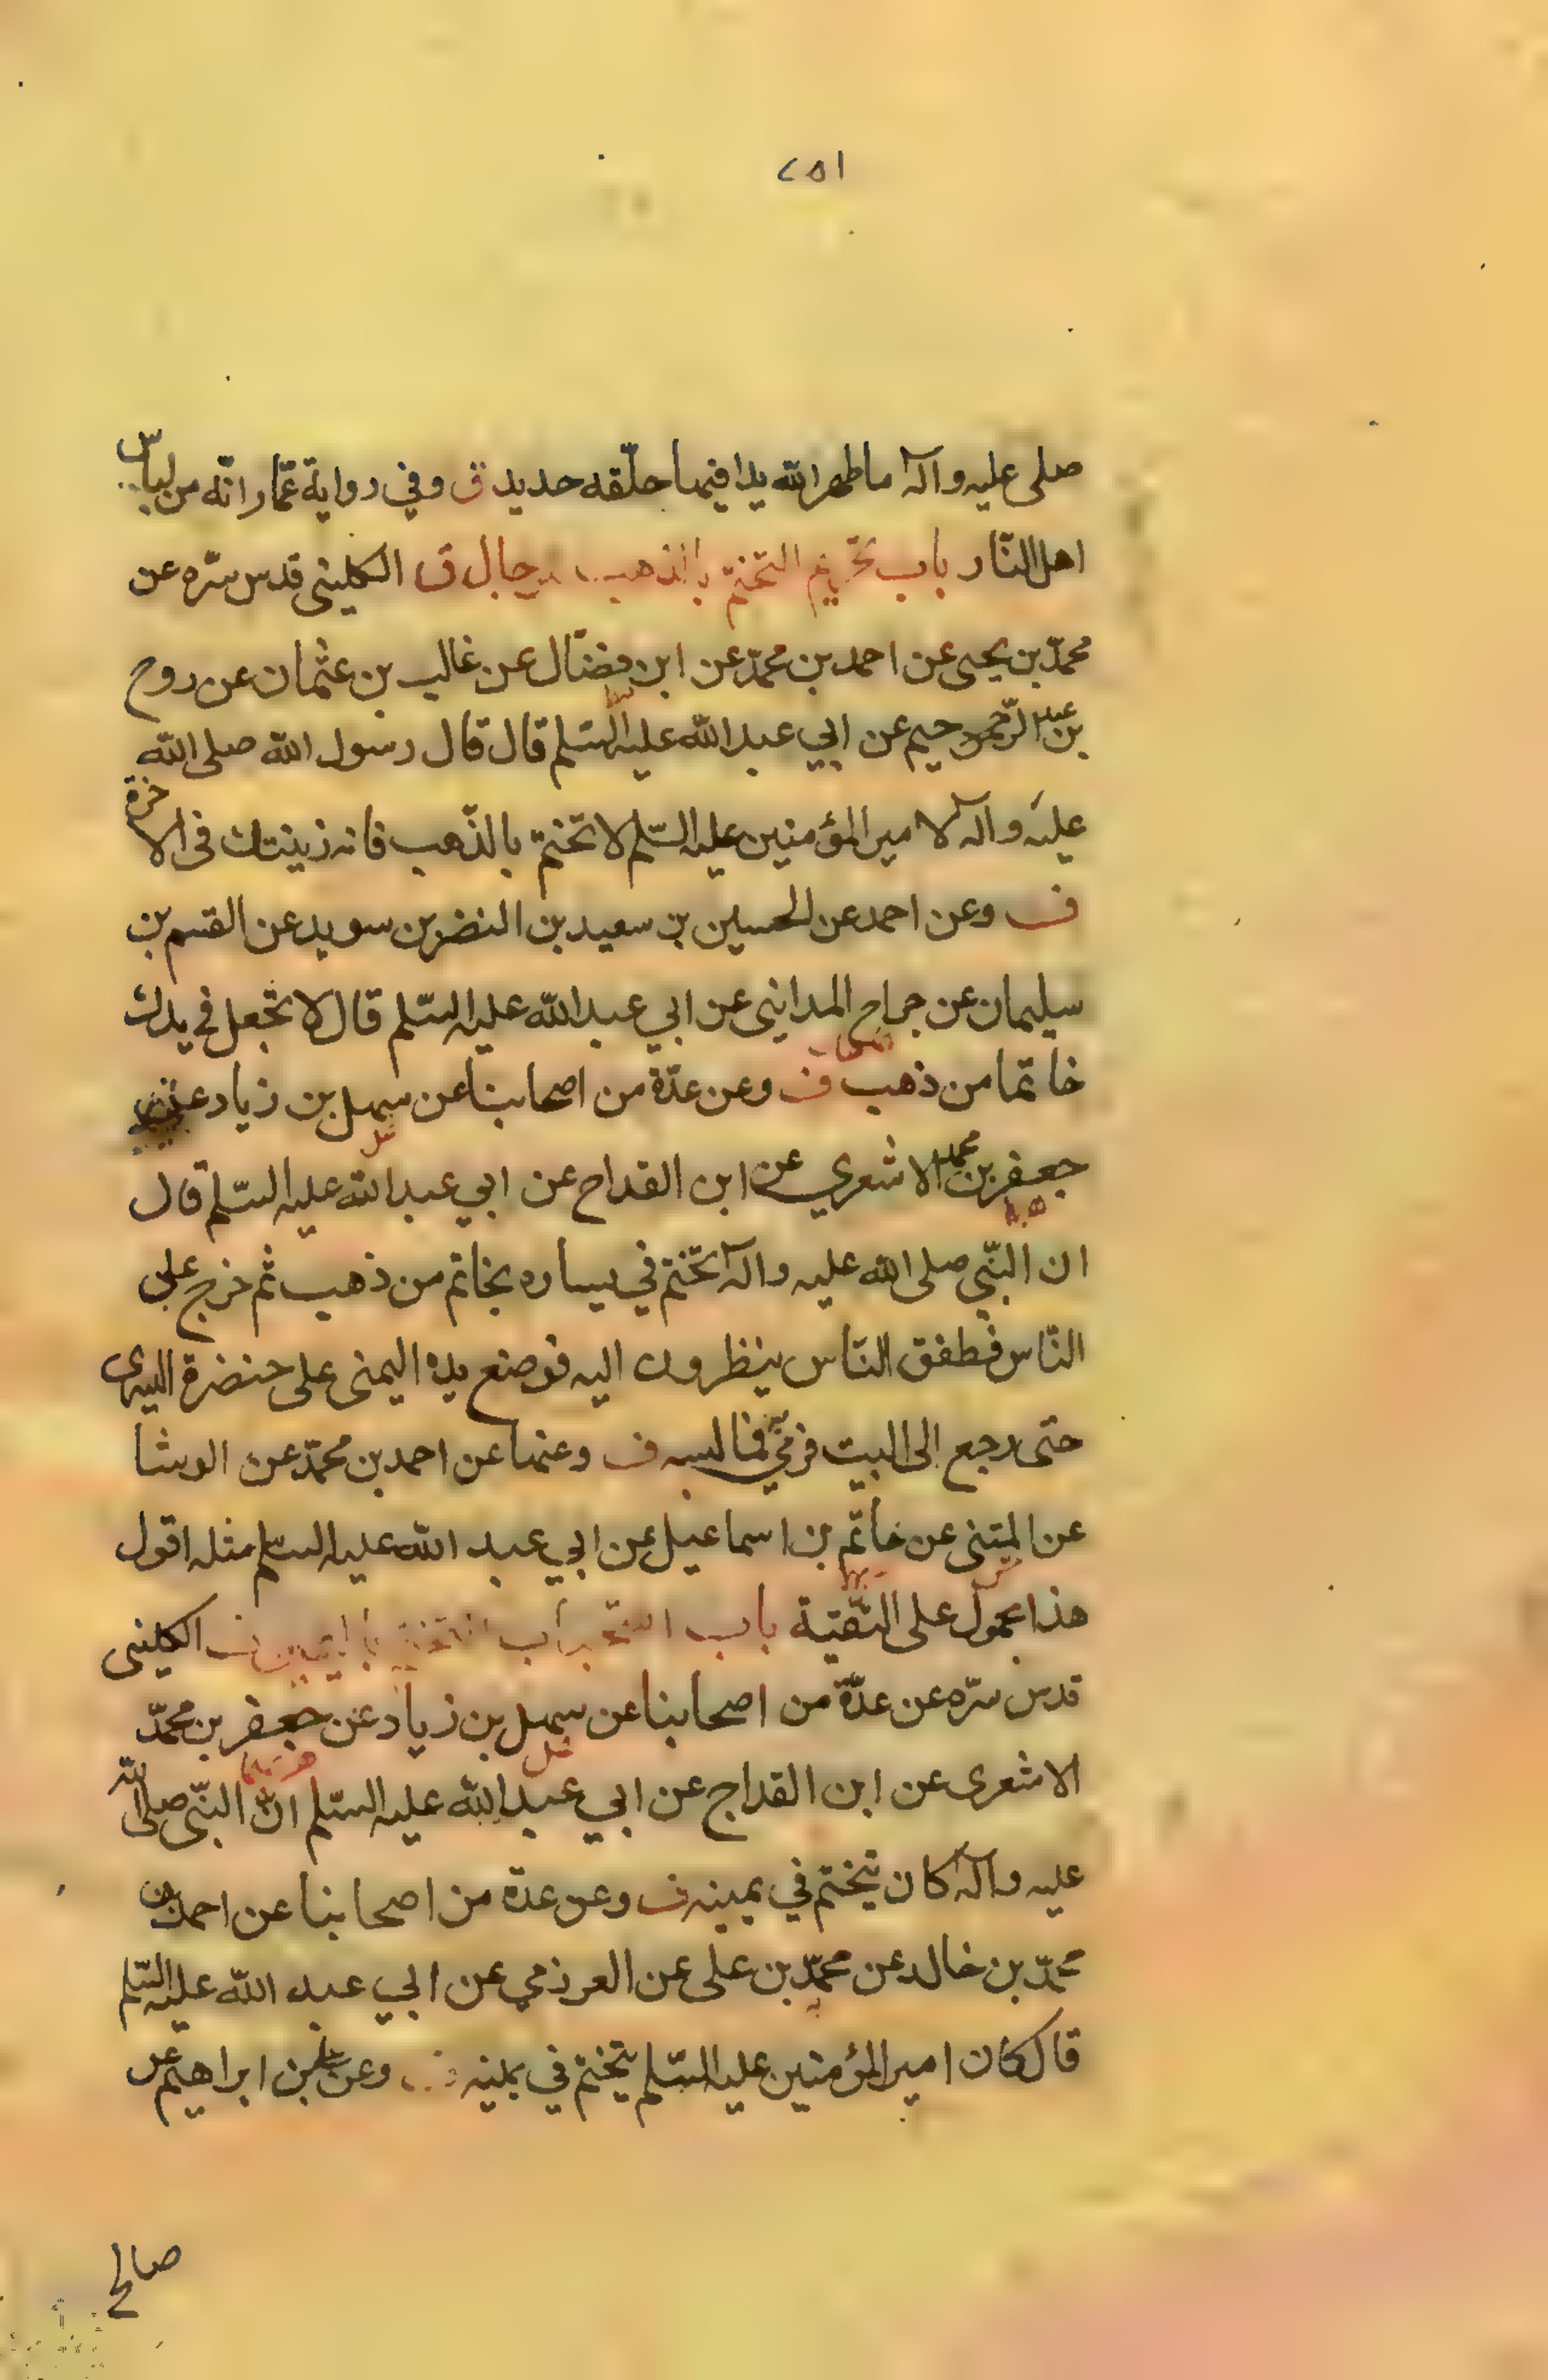 ٢٥١
صلى عليه وآله ما طهر الله يدا فيها حلقه حديد ق وفي رواية عمّار انّه من لباس
اهل النّار باب تحريم التختم بالذهب للرجال ف الكليني قدس سرّه عن
محمّد بن يحيى عن احمد بن محمّد عن ابن فضّال عن غالب بن عثمان عن روح
بن عبد الرّحيم عن ابي عبد الله عليه السّلم قال قال رسول الله صلى الله
عليه وآله لامير المؤمنين عليه السّلم لا تختم بالذّهب فانه زينتك في الاخرة
ف وعن احمد عن الحسين بن سعيد بن النضر بن سويد عن القسم بن
سليمان عن جراح المدايني عن ابي عبد الله عليه السّلم قال لا تجعل في يدك
خاتما من ذهب ف وعن عدّة من اصحابنا عن سهل بن زياد عن
جعفر بن محمد الاشعري عن ابن القداح عن ابي عبد الله عليه السّلم قال
ان النّبي صلى الله عليه وآله تختم في يساره بخاتم من ذهب ثم خرج على
النّاس فطفق النّاس ينظرون اليه فوضع يده اليمنى على خنضرة اليسرى
حتى رجع الى البيت فرمى فما لبسه ف وعنها عن احمد بن محمّد عن الوشا
عن المثنى عن خاتم بن اسماعيل عن ابي عبد الله عليه السلم مثله اقول
هذا محمول على التّقيّة باب استحباب التختم باليمين ف الكليني
قدس سرّه عن عدّة من اصحابنا عن سهل بن زياد عن جعفر بن محمّد
الاشعرى عن ابن القداح عن ابي عبد الله عليه السّلم انّ النّبي صلى الله
عليه وآله كان يتختم في يمينه ف وعن عدة من اصحابنا عن احمد بن
محمّد بن خالد عن محمّد بن على عن العرزمي عن ابي عبد الله عليه السّلم
قال كان امير المؤمنين عليه السّلم يتختم في يمينه ف وعن على بن ابراهيم عن
صالح